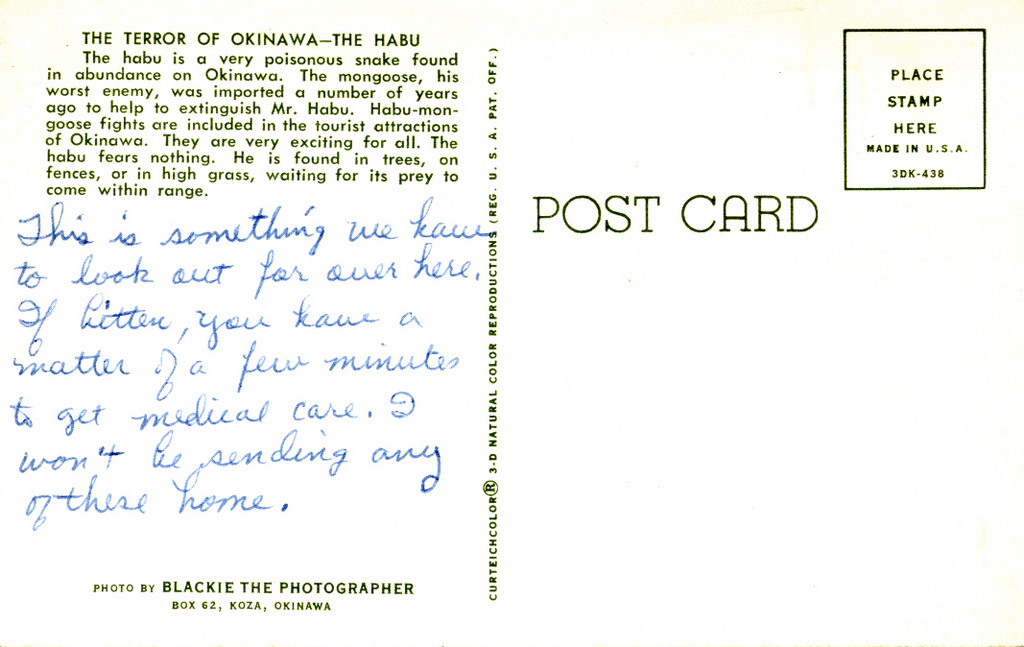 THE TERROR OF OKINAWA—THE HABU
The habu is a very poisonous snake found
in abundance on Okinawa. The mongoose, his
worst enemy, was imported a number of years
ago to help to extinguish Mr. Habu. Habu-mon-
goose fights are included in the tourist attractions
of Okinawa. They are very exciting for all. The
habu fears nothing. He is found in trees, on
fences, or in high grass, waiting for its prey to
come within range.
This is something we have
to look out for over here.
If bitten, you have a
matter of a few minutes
to get medical care. I
won't be sending any
of these home.
PHOTO BY BLACKIE THE PHOTOGRAPHER
BOX 62, KOZA, OKINAWA
CURTEICHCOLOR® 3-D NATURAL COLOR REPRODUCTIONS (REG. U. S. A. PAT. OFF.)
POST CARD
PLACE
STAMP
HERE
MADE IN U.S.A.
3DK-438